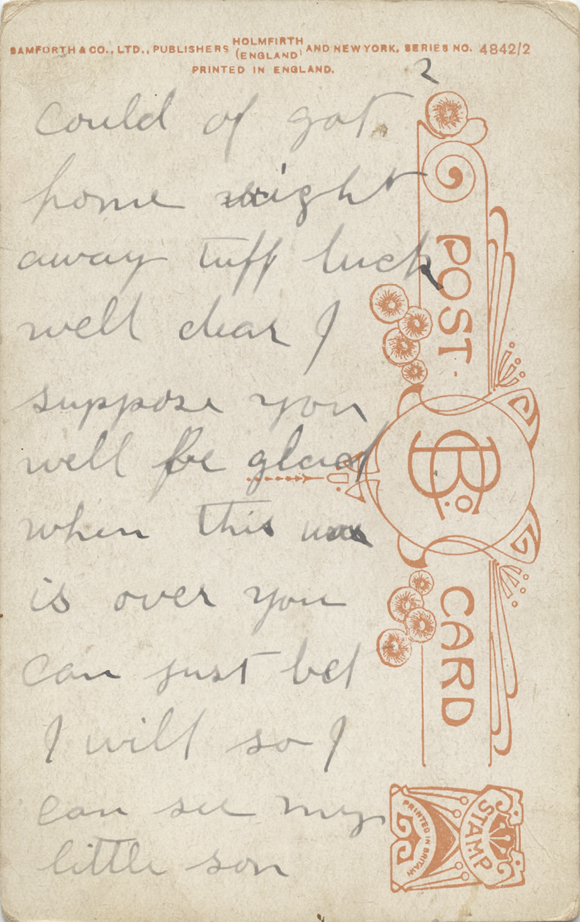 BAMFORTH & CO., LTD., PUBLISHERS HOLMFIRTH (ENGLAND) AND NEW YORK. SERIES NO. 4842/2
PRINTED IN ENGLAND.
2
could of got
home right
away tuff luck
well dear I
suppose you
well be glad
when this war
is over you
can just bet
I will so I
can see my
little son
POST CARD
B Co
STAMP
PRINTED IN BRITAIN